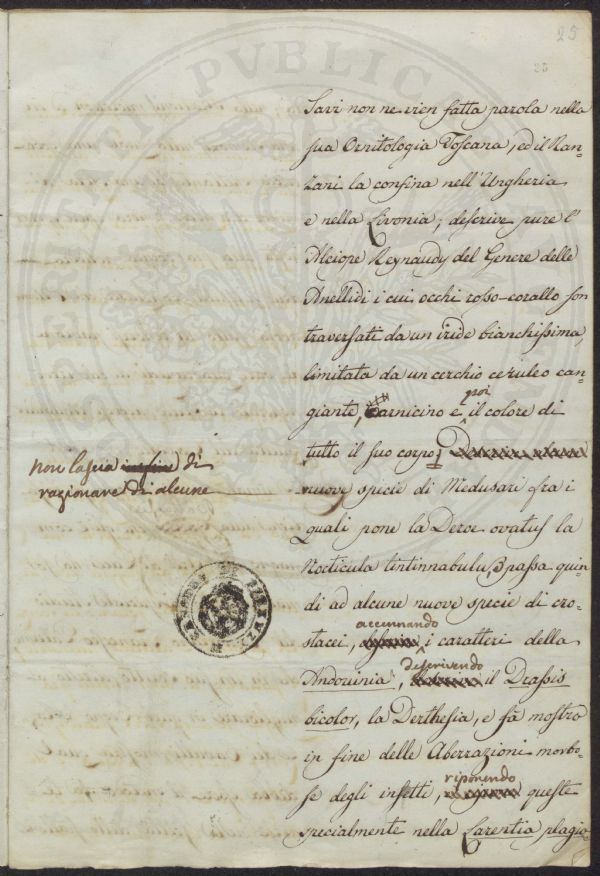 25
Savi non ne vien fatta parola nella
sua Ornitologia Toscana, ed il Ran-
zani la confina nell'Ungheria
e nella Livonia; descrive pure l'
Alciope Reynaudy del Genere delle
Anellidi i cui occhi rosso-corallo son
traversati da un iride bianchissima,
limitata da un cerchio ceruleo can-
giante, carnicino è poi il colore di
tutto il suo corpo;
non lascia di
razionare di alcune
nuove specie di Medusari fra i
quali pone la Beroe ovatus la
Nocticula tintinnabulu, passa quin-
di ad alcune nuove specie di cro-
stacei, accennando i caratteri della
Andouinia, descrivendo il Drassis
bicolor, la Derthesia, e fà mostro
in fine delle Aberrazioni morbo-
se degli insetti, riponendo queste
specialmente nella Larentia plagio